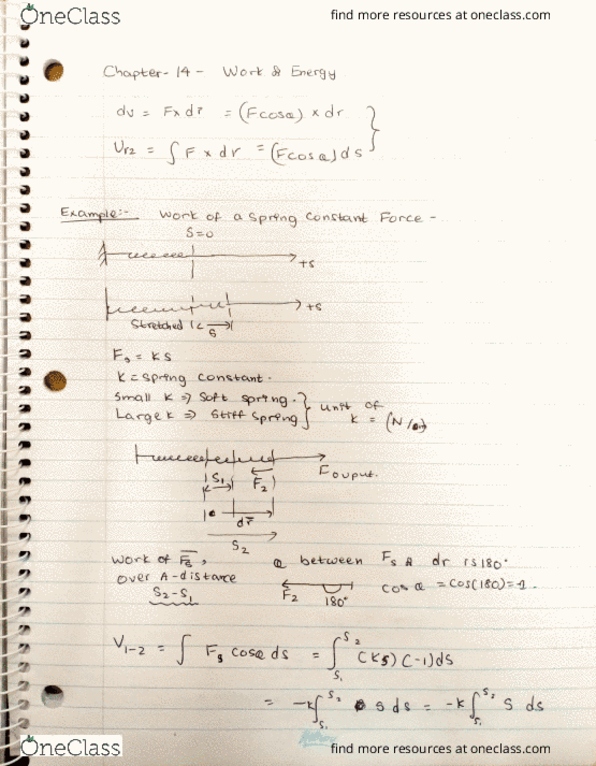 OneClass find more resources at oneclass.com
Chapter-14 - Work & Energy
dv = F x dr̄ = (Fcosθ) x dr
U12 = ∫ F x dr = (Fcosθ)ds
Example:- Work of a Spring Constant Force -
S=0
+s
+s
Stretched
S
Fs = KS
K = spring constant.
Small K => Soft spring.
Large K => Stiff Spring
unit of
K = (N/m)
S1 F2
dr̄
S2
Work of Fs,
over A-distance
S2-S1
θ between Fs & dr is 180°
F2 180°
cos θ = cos(180) = -1.
V1-2 = ∫ Fs cosθ ds = ∫ S1 S2 (ks)(-1)ds
= -k∫ S1 S2 s ds = -k∫ S1 S2 S ds
OneClass find more resources at oneclass.com